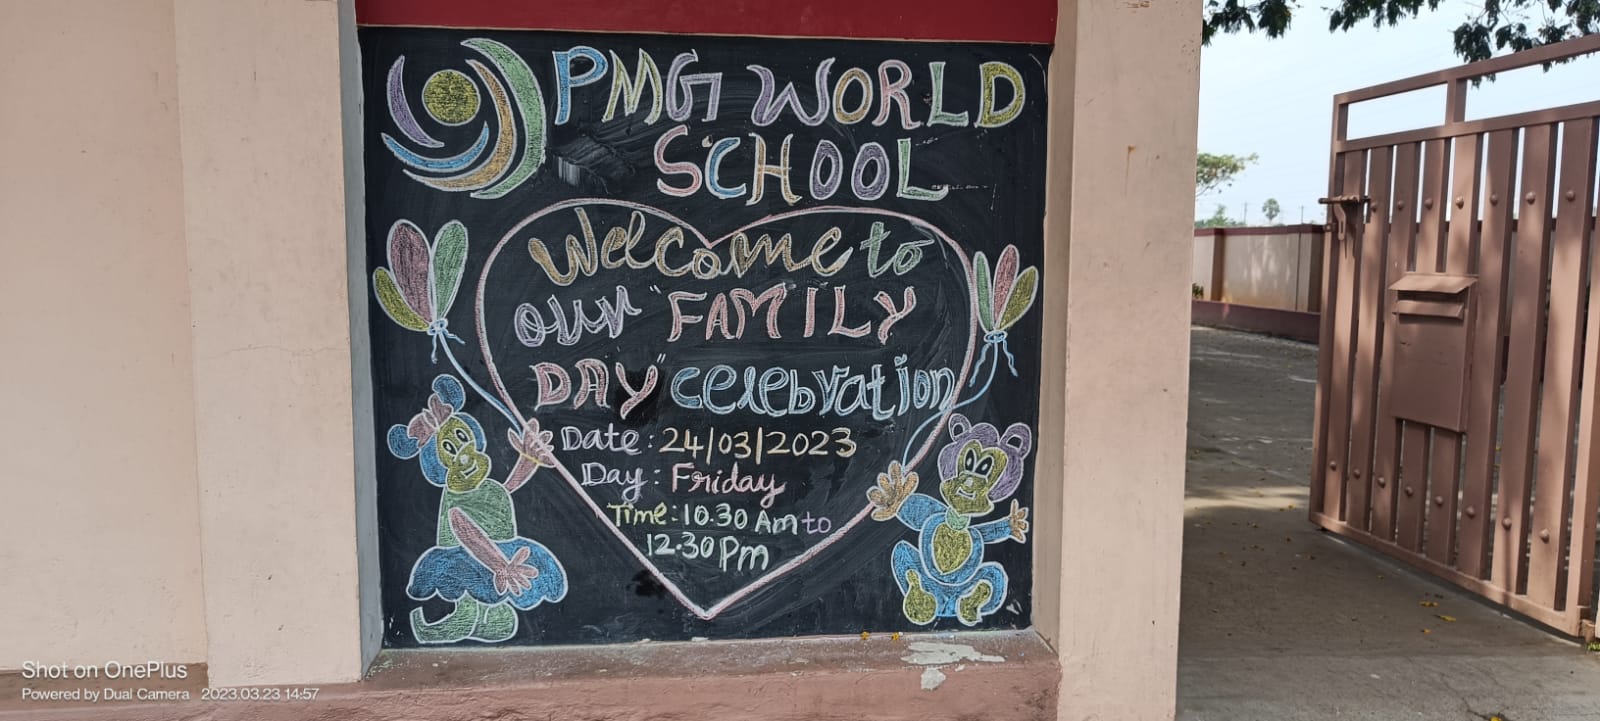 PMG WORLD
SCHOOL
Welcome to
our "FAMILY
DAY" celebration
Date : 24/03/2023
Day : Friday
Time : 10.30 Am to
12.30 Pm
Shot on OnePlus
Powered by Dual Camera 2023.03.23 14:57